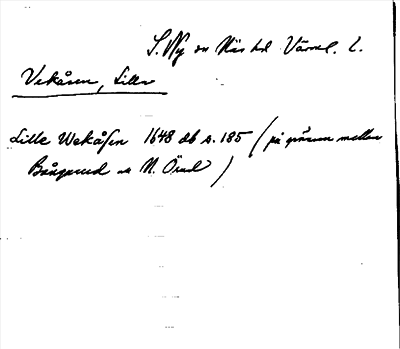 S. Ny sn Näs hd Värml. l.
Vekåsen, Lilla
Lille Wekåsen 1648 db s. 185 (på gränsen mellan
Bångsrud o N. Örud)